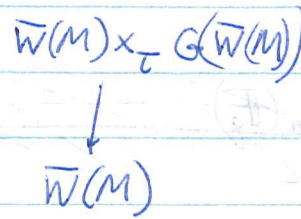 W̅(M) ×_τ G(W̅(M))
↓
W̅(M)